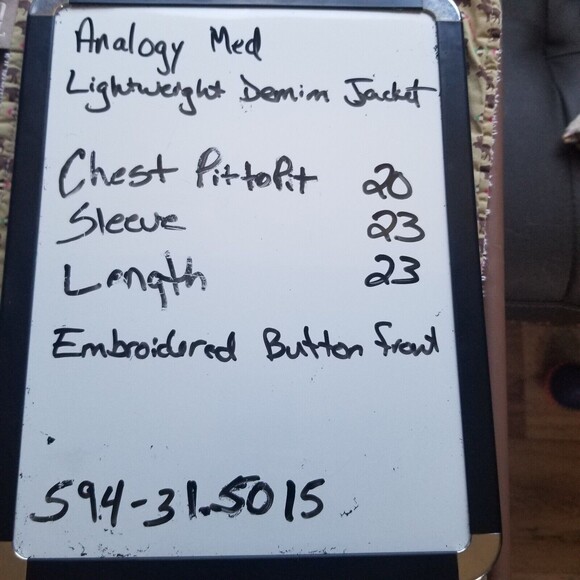 Analogy Med
Lightweight Denim Jacket
Chest Pit to Pit 20
Sleeve 23
Length 23
Embroidered Button front
594-31.5015